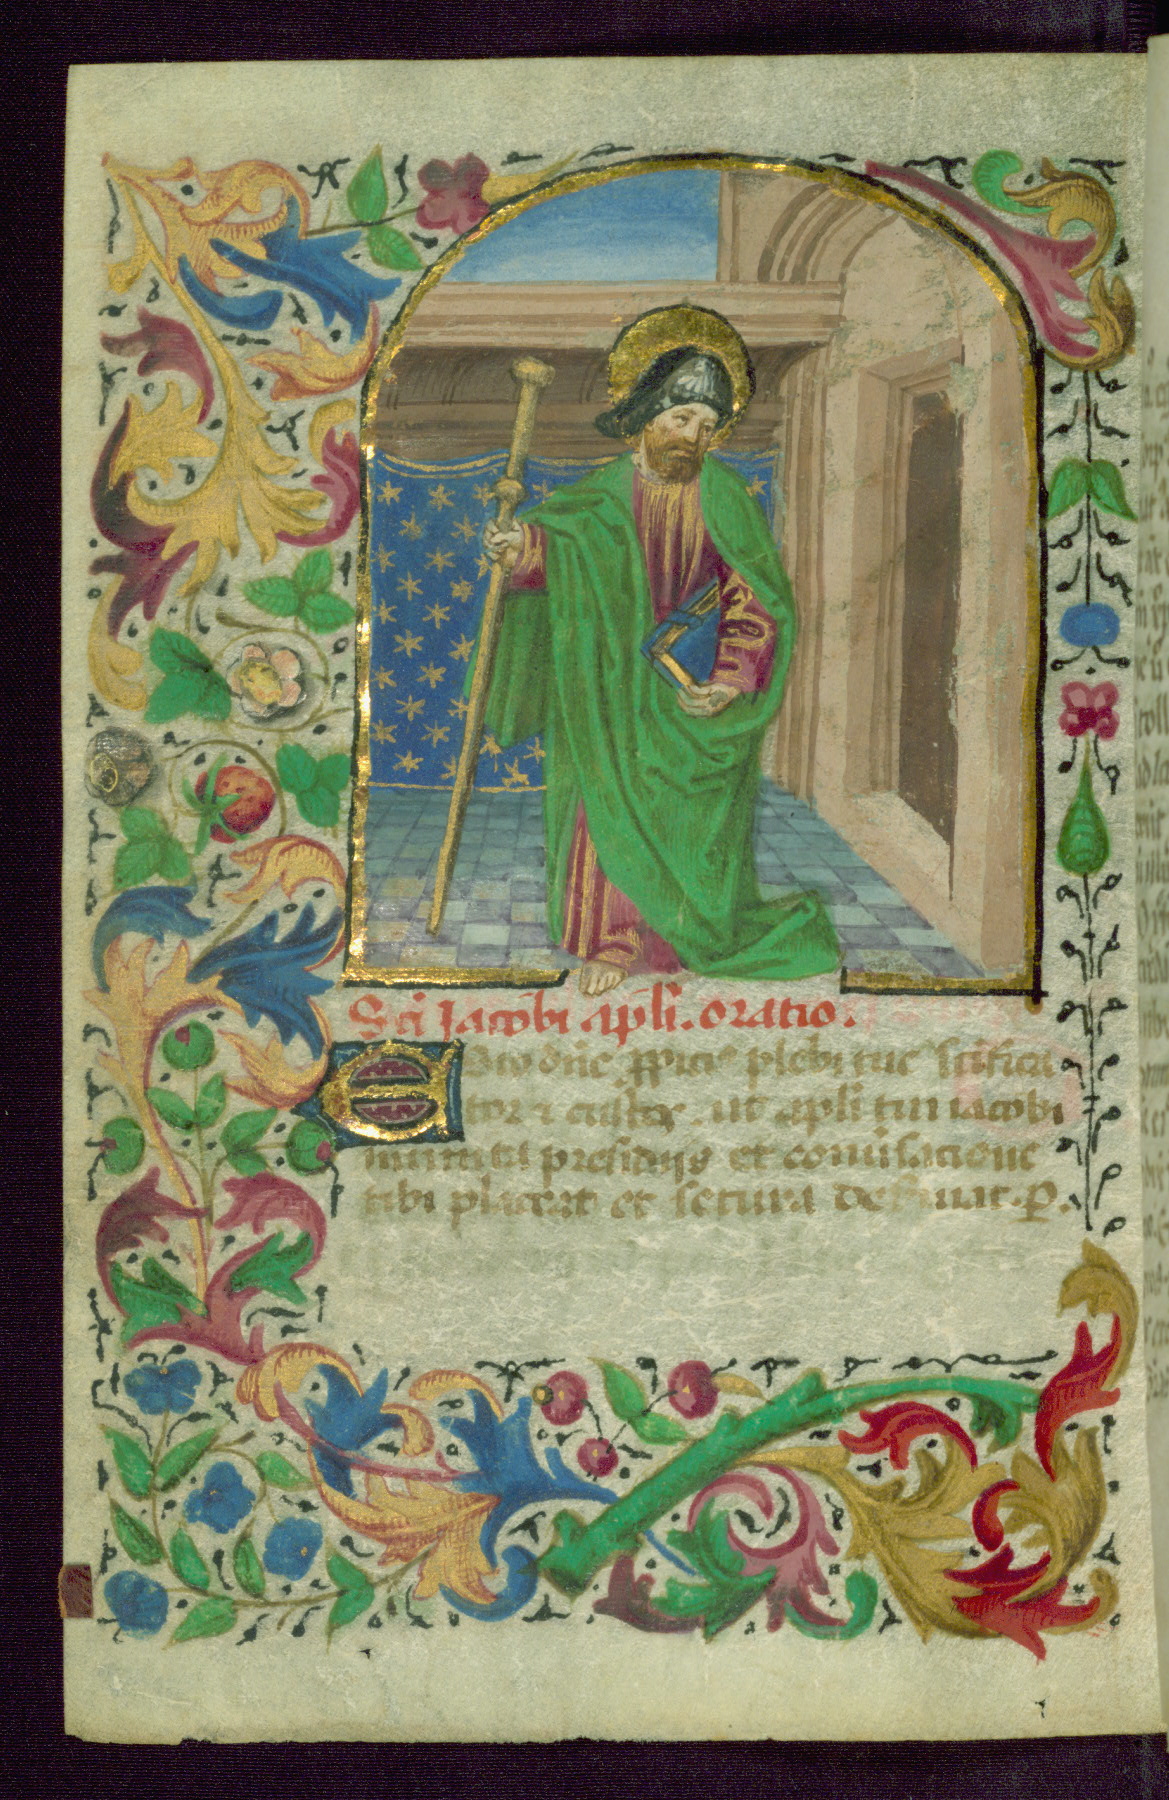 Sci Jacobi apli. oratio.
Esto dne plebi tue scifica
tor & custos. ut apli tui iacobi
munita presidijs et conuersatione
tibi placeat et secura deseruiat. P.